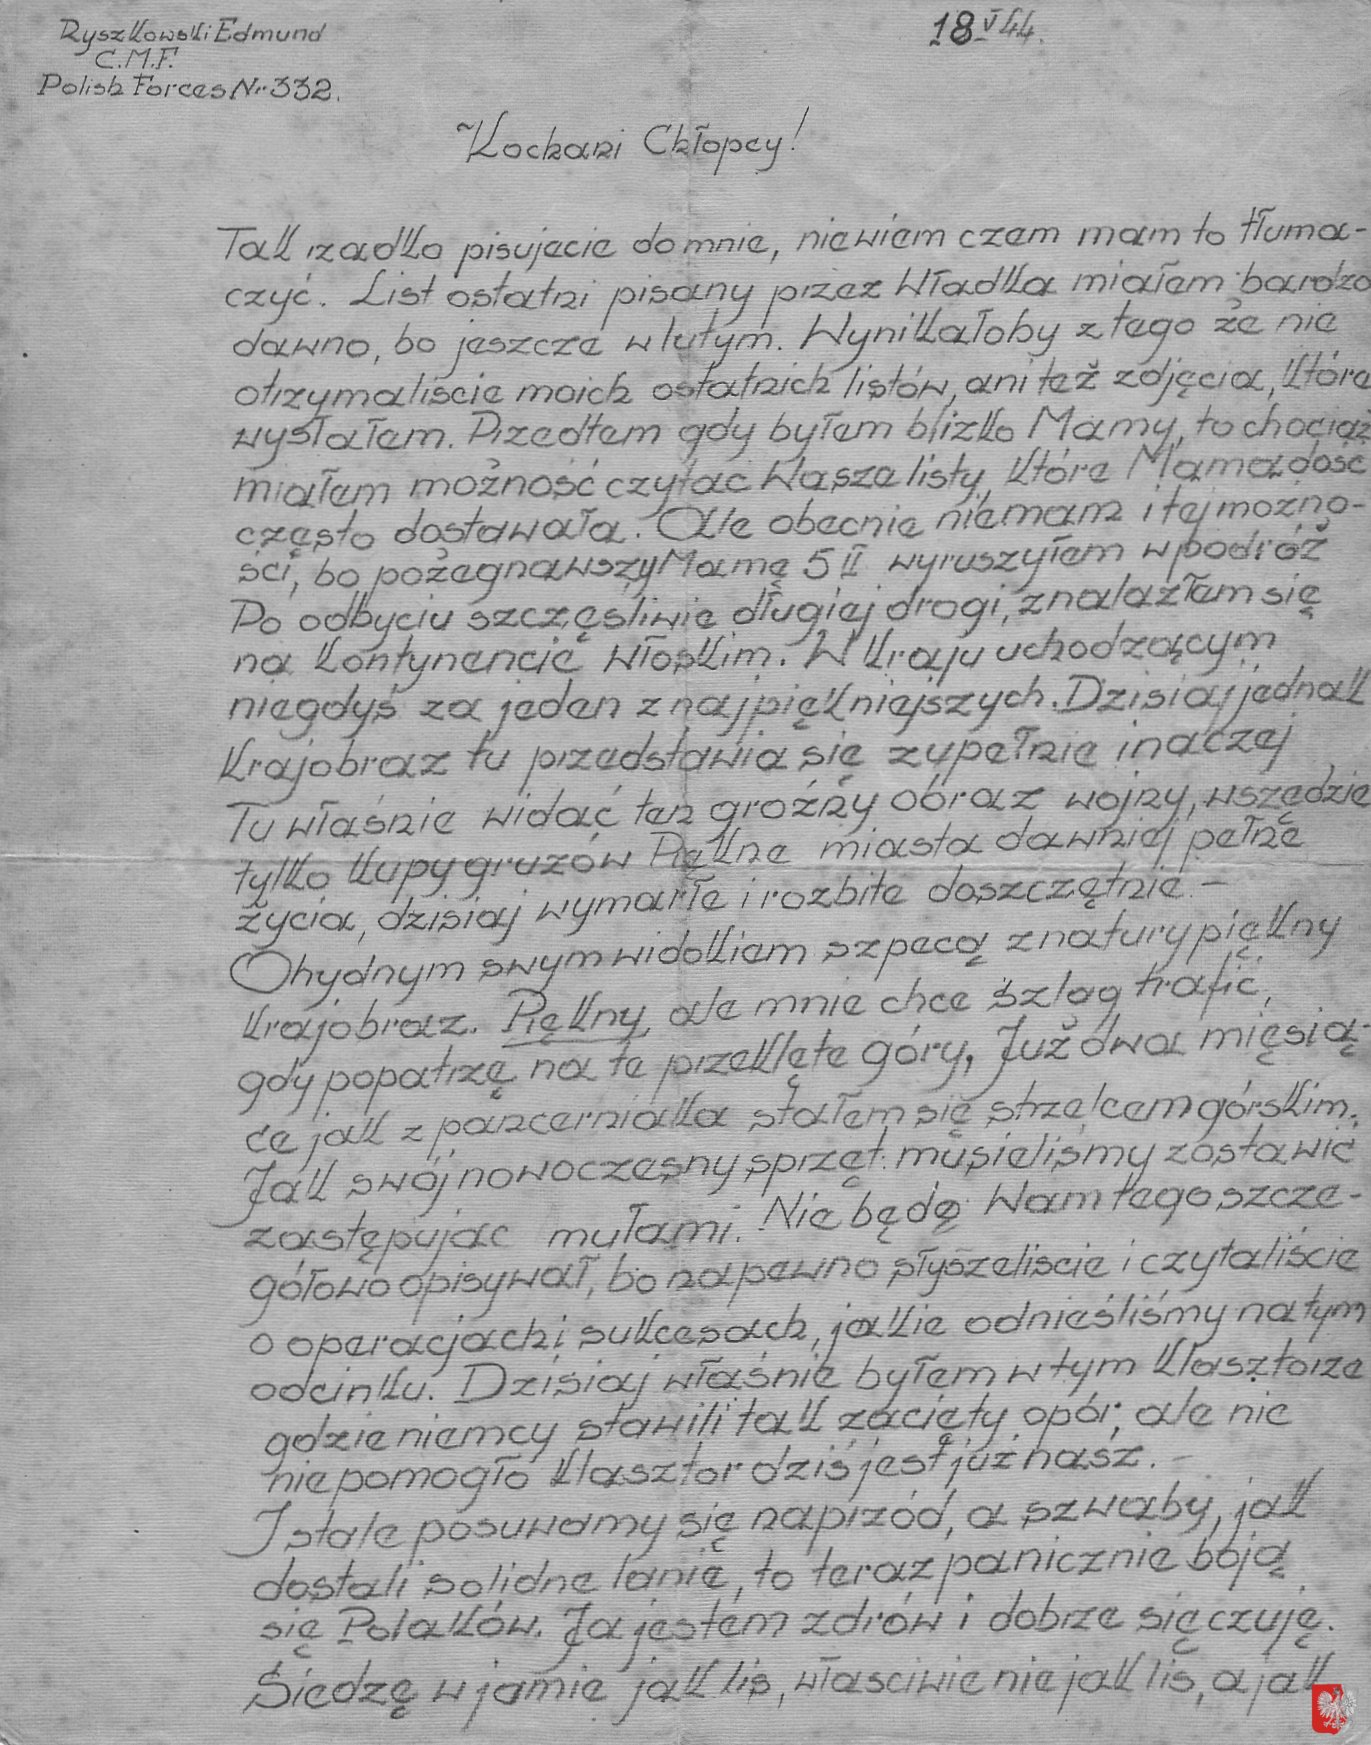 Ryszkowski Edmund
C.M.F.
Polish Forces Nr 332.
18 V 44.
Kochani Chłopcy!
Tak rzadko pisujecie do mnie, niewiem czem mam to tłuma-
czyć. List ostatni pisany przez Władka miałem bardzo
dawno, bo jeszcze w lutym. Wynikałoby z tego że nie
otrzymaliście moich ostatnich listów, ani też zdjęcia, które
wysłałem. Przedtem gdy byłem blizko Mamy, to chociaż
miałem możność czytać Wasze listy, które Mama dość
często dostawała. Ale obecnie niemam i tej możno-
ści, bo pożegnawszy Mamę 5 II wyruszyłem w podróż
Po odbyciu szczęśliwie długiej drogi, znalazłem się
na kontynencie włoskim. W kraju uchodzącym
niegdyś za jeden z najpiękniejszych. Dzisiaj jednak
krajobraz tu przedstawia się zupełnie inaczej
Tu właśnie widać ten groźny obraz wojny, wszędzie
tylko kupy gruzów Piękne miasta dawniej pełne
życia, dzisiaj wymarłe i rozbite doszczętnie. –
Ohydnym swym widokiem szpecą z natury piękny
krajobraz. Piękny, ale mnie chce szlag trafić,
gdy popatrzę na te przeklęte góry, Już dwa mięsią
ce jak z pancerniaka stałem się strzelcem górskim.
Jak swój nowoczesny sprzęt musieliśmy zostawić
zastępując mułami. Nie będę Wam tego szcze-
gółowo opisywał, bo napewno słyszeliscie i czytaliście
o operacjach i sukcesach, jakie odnieśliśmy na tym
odcinku. Dzisiaj właśnie byłem w tym klasztorze
gdzie niemcy stawili tak zacięty opór, ale nie
nie pomogło klasztor dziś jest już nasz. –
I stale posuwamy się naprzód, a szwaby, jak
dostali solidne lanie, to teraz panicznie boją
się Polaków. Ja jestem zdrów i dobrze się czuję.
Siedzę w jamie jak lis, właściwie nie jak lis, a jak